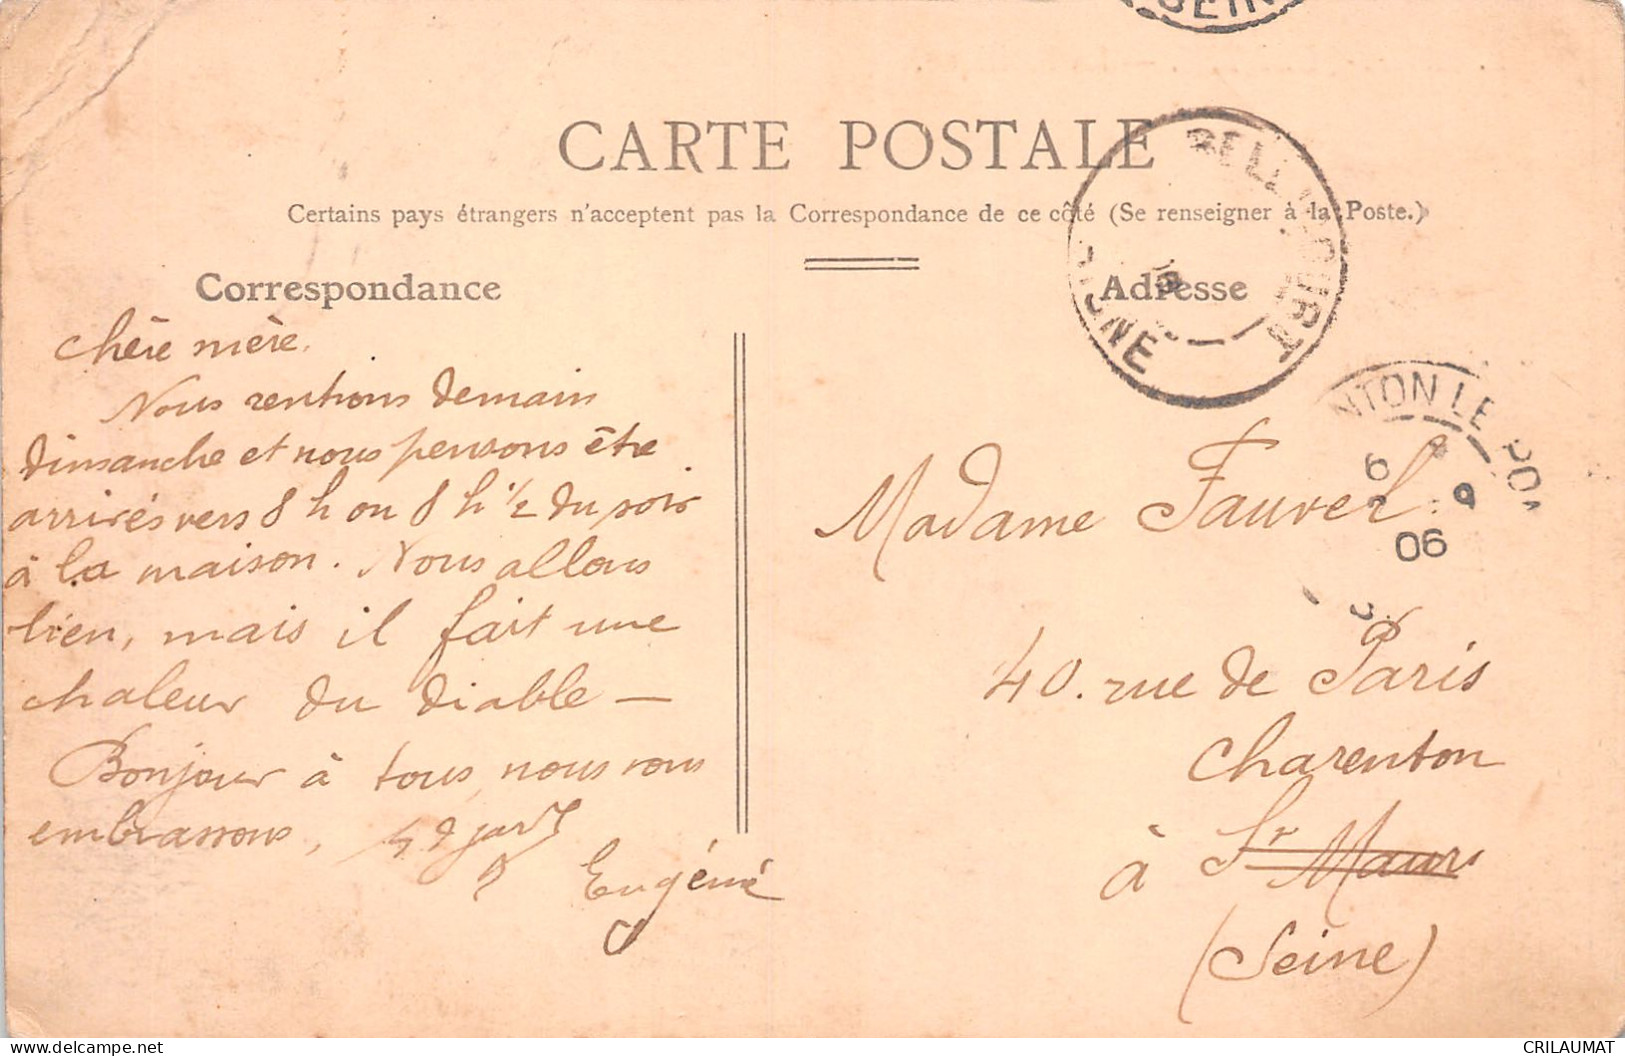 SEINE
CARTE POSTALE
Certains pays étrangers n'acceptent pas la Correspondance de ce côté (Se renseigner à la Poste.)
Correspondance
Chère mère.
Nous rentrons demain
dimanche et nous pensons être
arrivés vers 8 h ou 8 h 1/2 du soir
à la maison. Nous allons
bien, mais il fait une
chaleur du diable —
Bonjour à tous, nous vous
embrassons,
Eugène
Adresse
BELLICOURT
AISNE
NTON LE PO
6
06
Madame Fauvel
40. rue de Paris
Charenton
à St Maur
(Seine)
CRILAUMAT